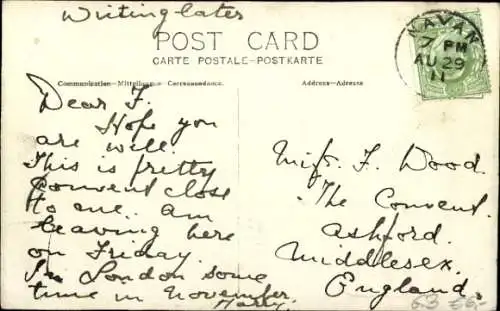 Writing later
POST CARD
CARTE POSTALE-POSTKARTE
Communication-Mittheilung-Correspondance.
Address-Adresse
NAVAN
7 PM
AU 29
11
Dear F.
Hope you
are well.
This is pretty
Convent close
to me. am
leaving here
on Friday.
In London some
time in November.
Harry
Miss F. Wood.
The Convent.
Ashford.
Middlesex.
England.
63 €6,-